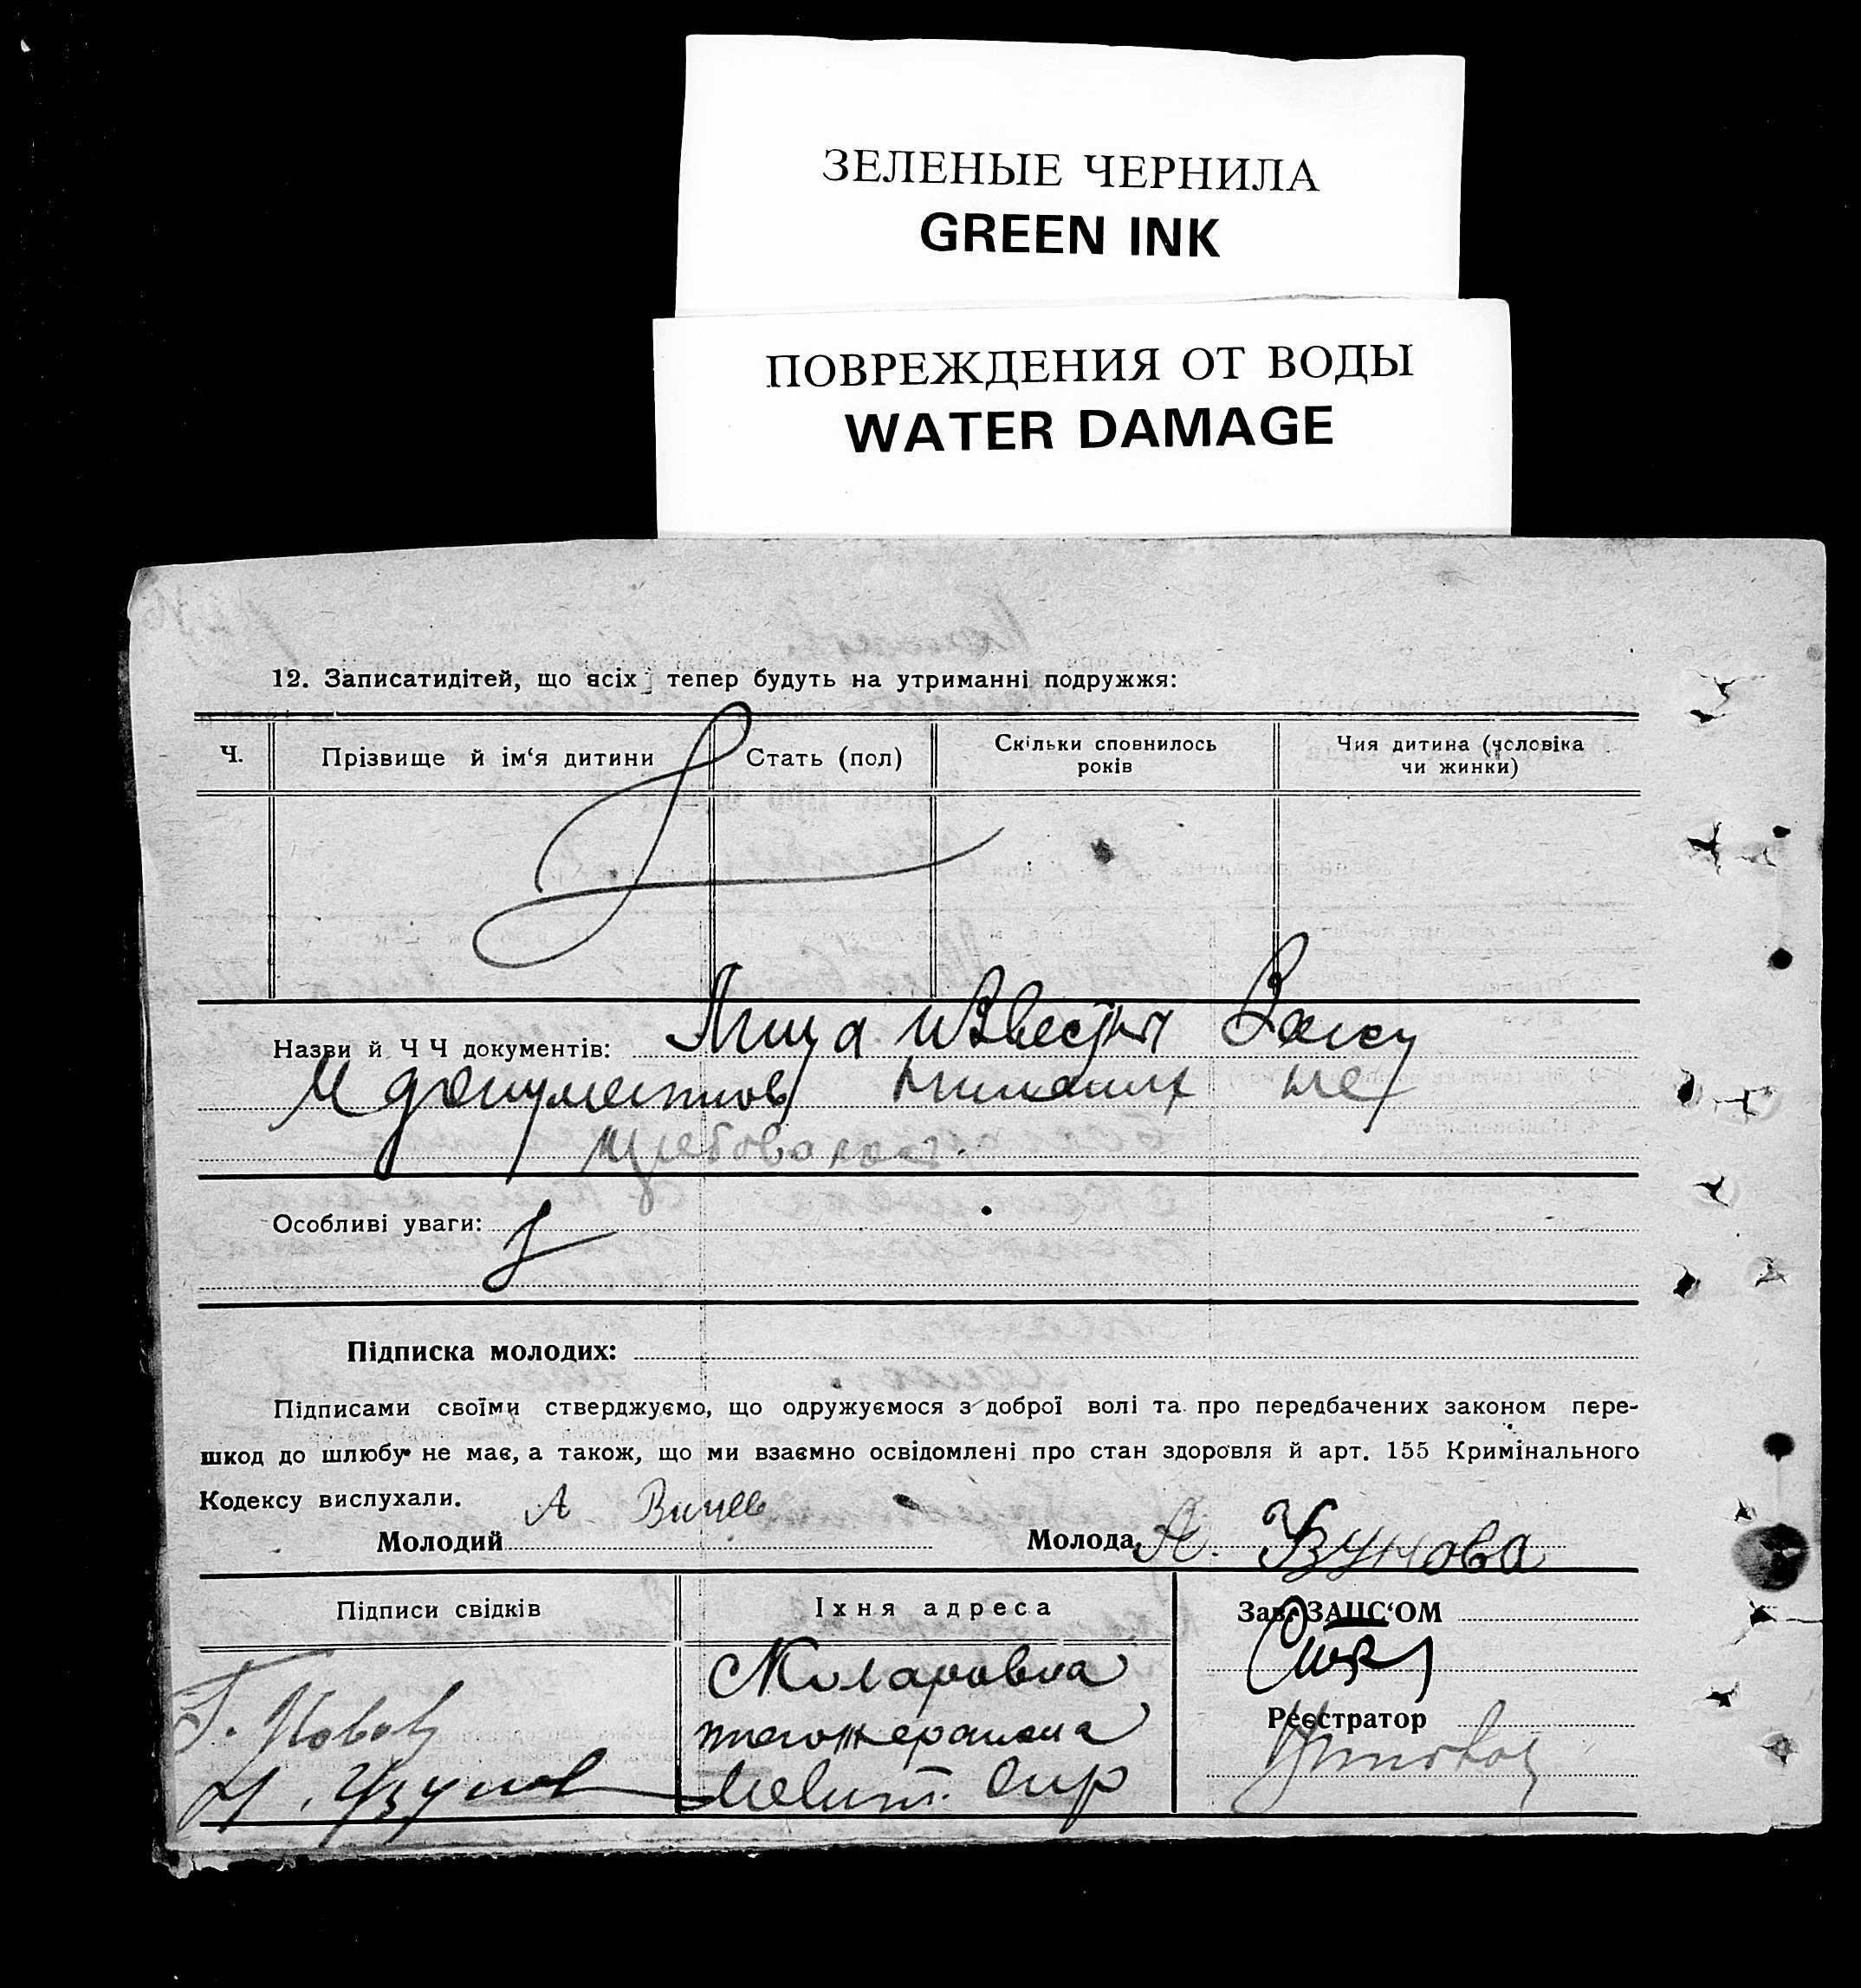 ЗЕЛЕНЫЕ ЧЕРНИЛА
GREEN INK
ПОВРЕЖДЕНИЯ ОТ ВОДЫ
WATER DAMAGE
12. Записатидітей, що всіх тепер будуть на утриманні подружжя:
Ч. Прізвище й ім‘я дитини Стать (пол) Скільки сповнилось років Чия дитина (чсловіка чи жинки)
Назви й Ч Ч документів: Лица известны Загсу
И документов никаких не
требовалось.
Особливі уваги:
Підписка молодих:
Підписами своїми стверджуємо, що одружуємося з доброї волі та про передбачених законом пере-
шкод до шлюбу не має, а також, що ми взаємно освідомлені про стан здоров'я й арт. 155 Кримінального
Кодексу вислухали.
Молодий А Молода А. Узунова
Підписи свідків Їхня адреса Зав. ЗАЦС‘ОМ
Г.
Реєстратор
И. Узунов